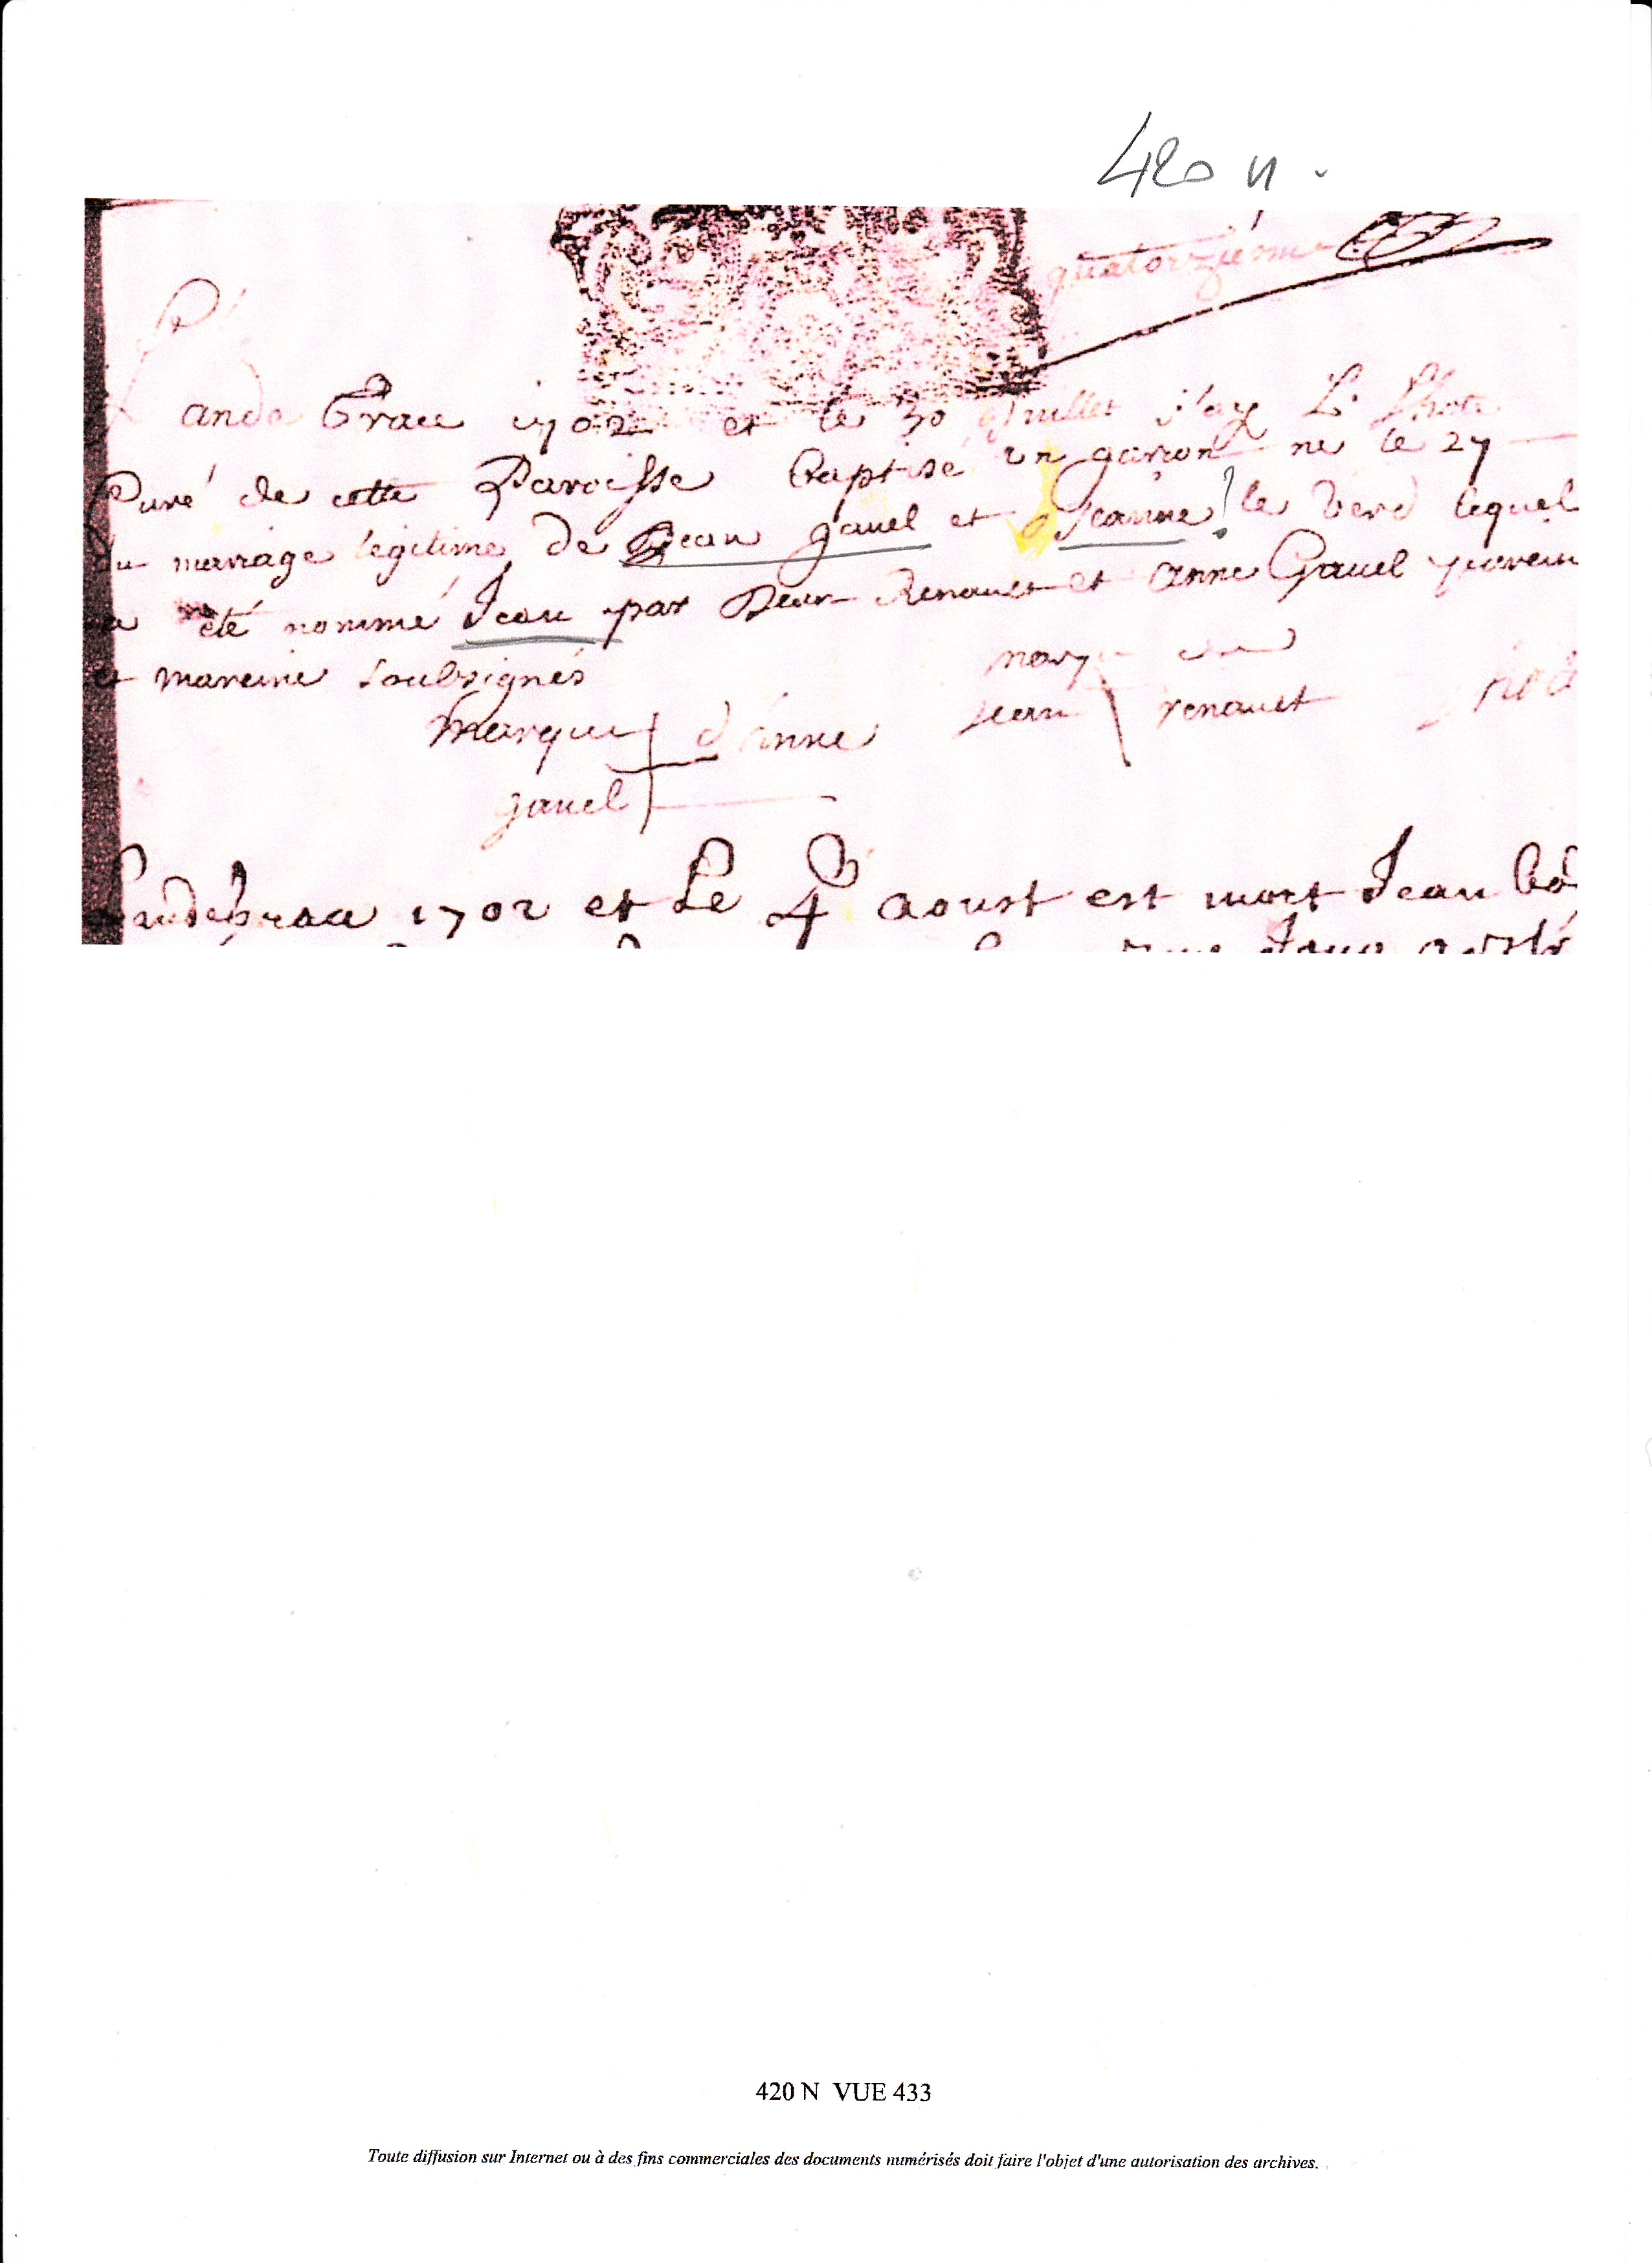 420 N.
quatorzièsme
L'ande Grace 1702 et le 30 Juillet j'ay L.
Curé de cette Paroisse baptisé un garson né le 27
du mariage légitime de Jean gauel et Jeanne ! le verd lequel
a été nommé Jean par Jean Renault et anne Gauel parein
et mareine soubsignés
marque du
marque d'anne jean renault
gauel
L'andegrace 1702 et Le 4 aoust est mort Jean
420 N VUE 433
Toute diffusion sur Internet ou à des fins commerciales des documents numérisés doit faire l'objet d'une autorisation des archives.